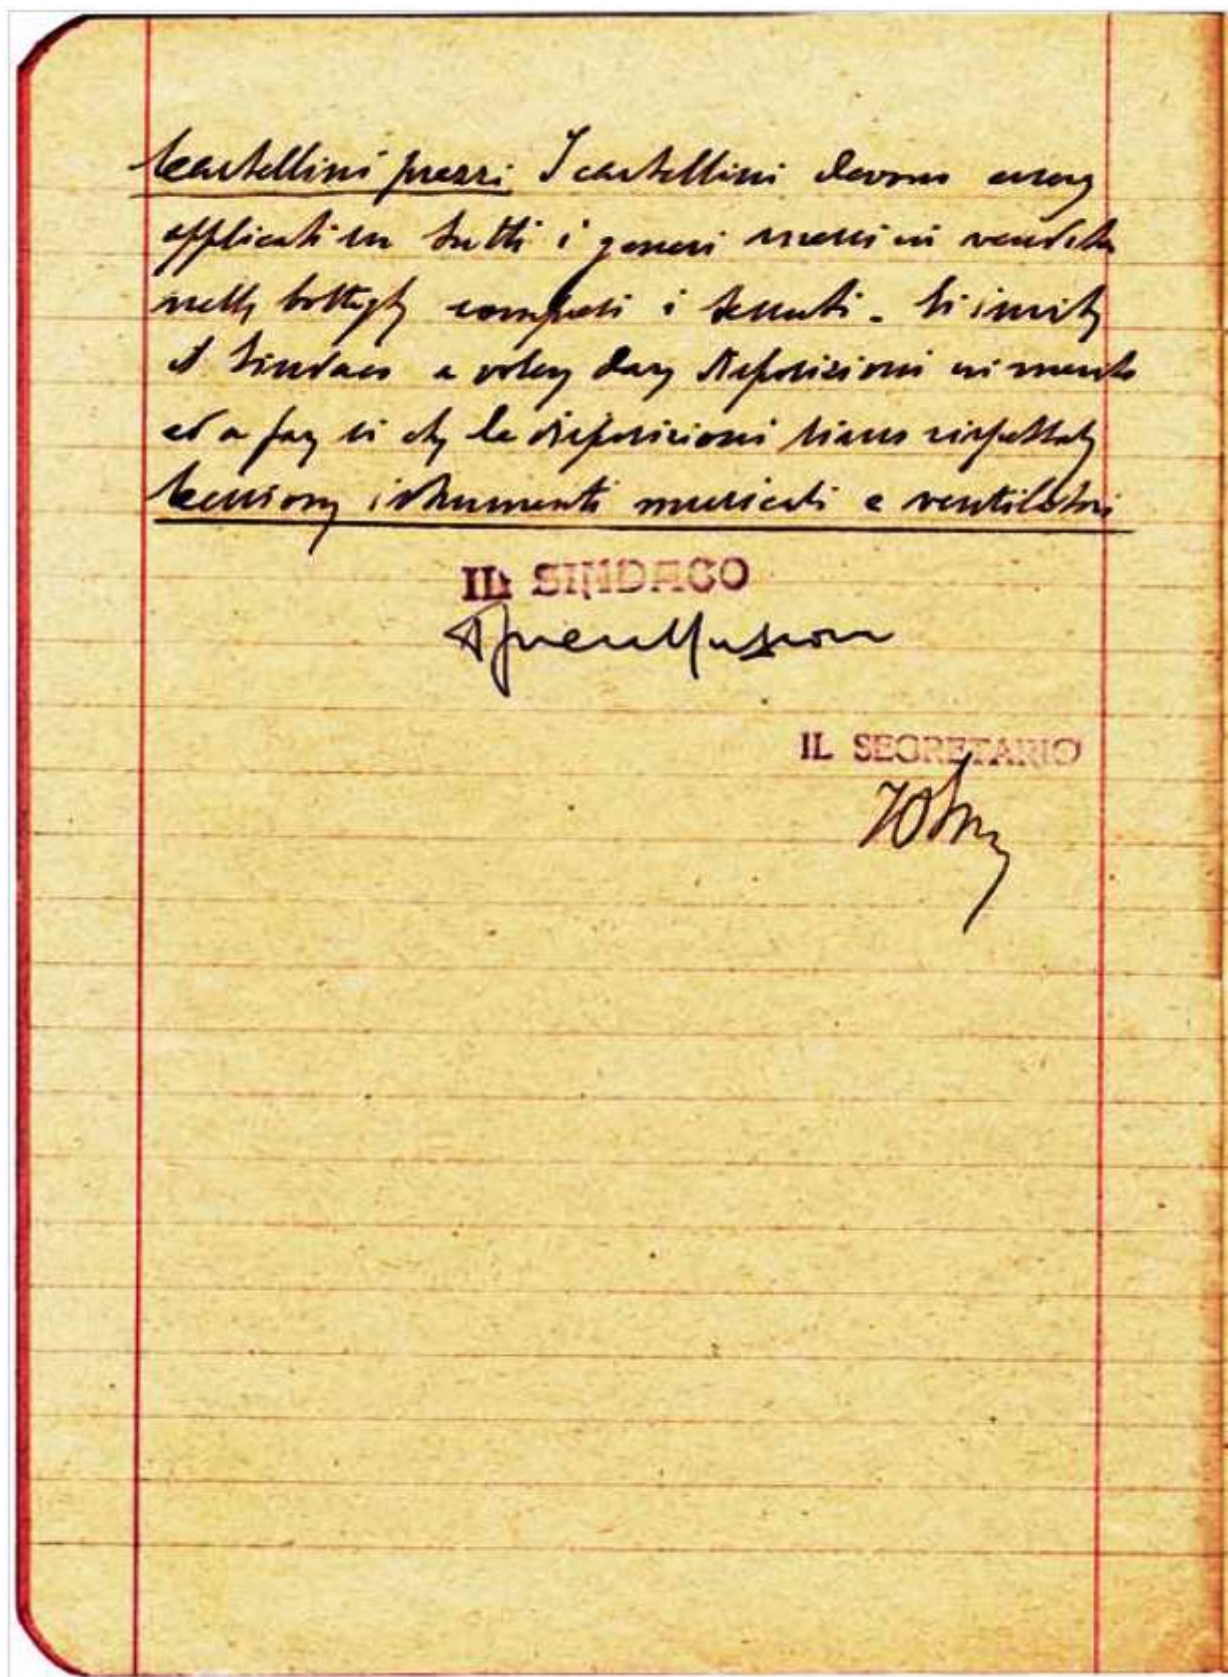 Cartellini prezzi I cartellini devono essere
applicati su tutti i generi messi in vendita
nelle botteghe compresi i tessuti. Si invita
il Sindaco a voler dare disposizioni in merito
ed a far si che le disposizioni siano rispettate
Cessione istrumenti musicali e ventilatori
IL SINDACO
IL SEGRETARIO